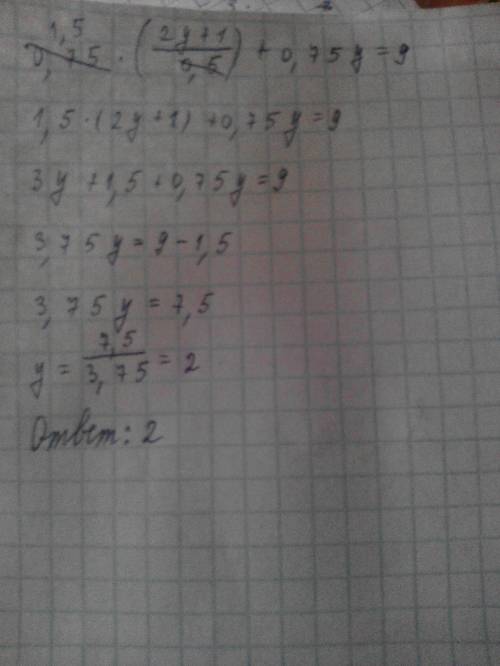 1,5
0,75 · (2y+1 / 0,5) + 0,75y = 9
1,5·(2y+1)+0,75y=9
3y+1,5+0,75y=9
3,75y=9-1,5
3,75y=7,5
y = 7,5 / 3,75 = 2
Ответ: 2